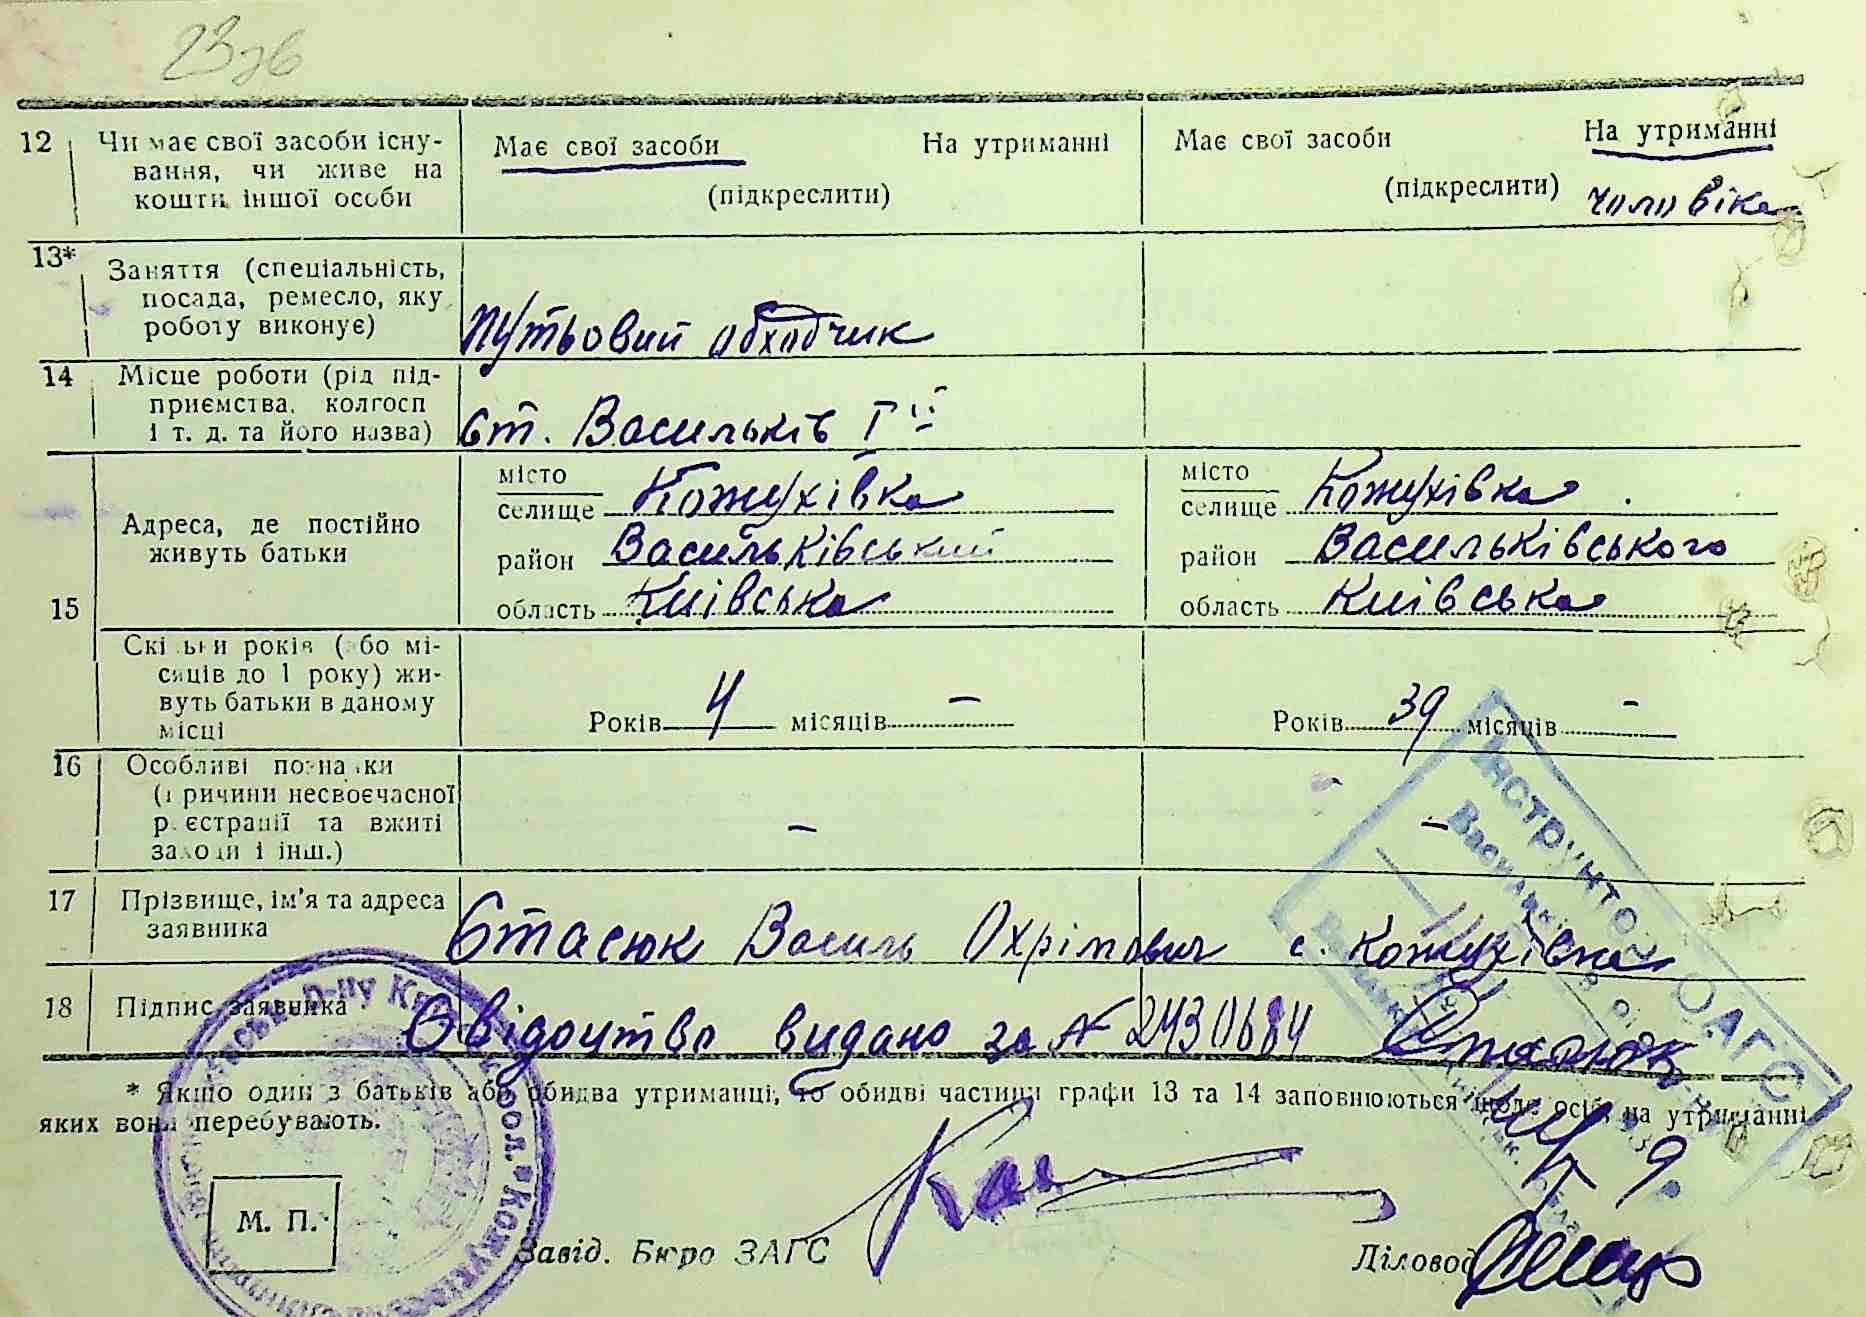 23зв
12 Чи має свої засоби існу- Має свої засоби На утриманні Має свої засоби На утриманні
вання, чи живе на (підкреслити) (підкреслити) чоловіка
кошти іншої особи
13* Заняття (спеціальність,
посада, ремесло, яку
роботу виконує) Путьовий обходчик
14 Місце роботи (рід під-
приємства, колгосп
і т. д. та його назва) Ст. Васильків Iй
15 Адреса, де постійно
живуть батьки
місто
селище Кожухівка
район Васильківський
область Київська
місто
селище Кожухівка
район Васильківського
область Київська
Скільки років (або мі-
сяців до 1 року) жи-
вуть батьки в даному
місці
Років 4 місяців – Років 39 місяців –
16 Особливі познаки
(причини несвоєчасної
реєстрації та вжиті
заходи і інш.) – –
17 Прізвище, ім'я та адреса
заявника Стасюк Василь Охрімович с. Кожухівка
18 Підпис заявника Свідоцтво видано за № 2430684 Стасюк
* Якщо один з батьків або обидва утриманці, то обидві частини графи 13 та 14 заповнюються щодо осіб, на утриманні
яких вони перебувають.
М. П.
Завід. Бюро ЗАГС
Діловод
Інструктор ОАГС